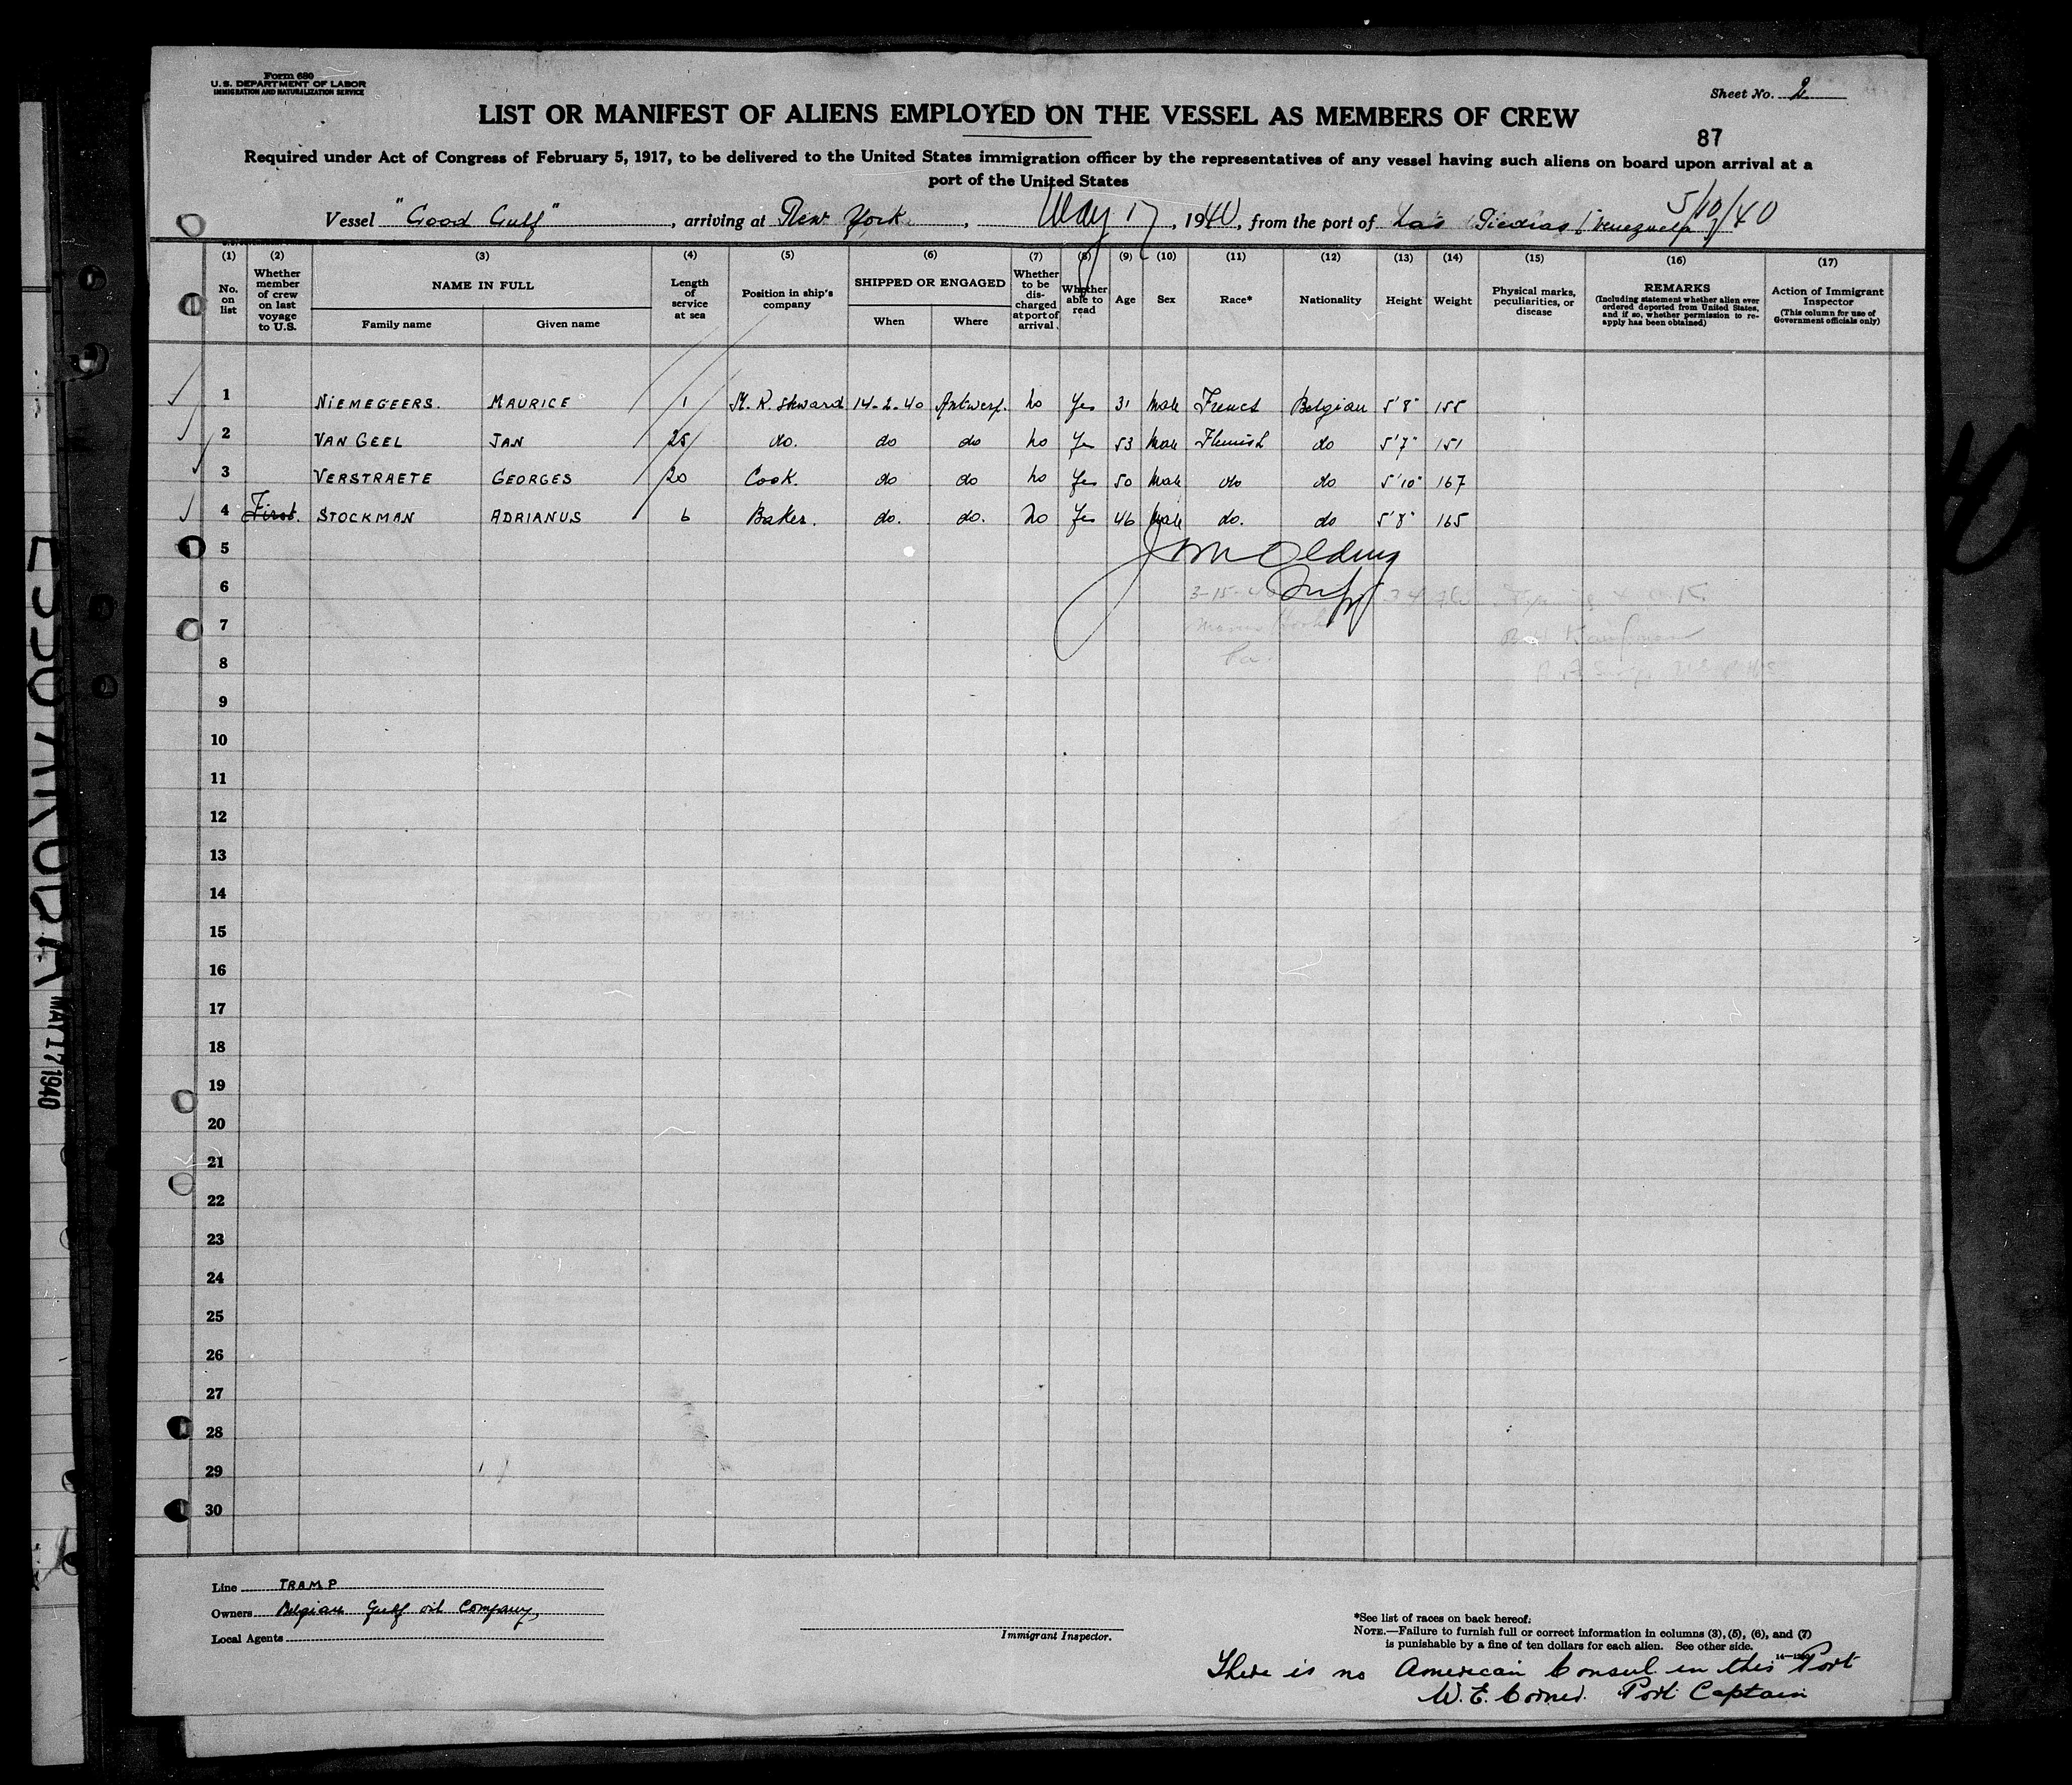 Form 680
U.S. DEPARTMENT OF LABOR
IMMIGRATION AND NATURALIZATION SERVICE
Sheet No. 2
LIST OR MANIFEST OF ALIENS EMPLOYED ON THE VESSEL AS MEMBERS OF CREW
87
Required under Act of Congress of February 5, 1917, to be delivered to the United States immigration officer by the representatives of any vessel having such aliens on board upon arrival at a
port of the United States
5/10/40
Vessel "Good Gulf", arriving at New York, May 17, 1940, from the port of Las Piedras (Venezuela)
(1) (2) (3) (4) (5) (6) (7) (8) (9) (10) (11) (12) (13) (14) (15) (16) (17)
No. on list
Whether member of crew on last voyage to U.S.
NAME IN FULL
Family name Given name
Length of service at sea
Position in ship's company
SHIPPED OR ENGAGED
When Where
Whether to be discharged at port of arrival
Whether able to read
Age Sex Race* Nationality Height Weight
Physical marks, peculiarities, or disease
REMARKS
(Including statement whether alien ever ordered deported from United States, and if so, whether permission to re-apply has been obtained)
Action of Immigrant Inspector
(This column for use of Government officials only)
1 NIEMEGEERS. MAURICE 1 M. R. Steward 14-2-40 Antwerp. no Yes 31 Male French Belgian 5'8" 155
2 VAN GEEL JAN 25 do. do do no Yes 53 Male Flemish do 5'7" 151
3 VERSTRAETE GEORGES 20 Cook. do do no Yes 50 Male do do 5'10" 167
4 First. STOCKMAN ADRIANUS 6 Baker. do. do. no Yes 46 Male do. do 5'8" 165
5
6 3-15-40
7 Marcus Hook
8 Pa.
9
10
11
12
13
14
15
16
17
18
19
20
21
22
23
24
25
26
27
28
29
30
Line TRAMP
Owners Belgian Gulf oil Company,
Local Agents
Immigrant Inspector.
*See list of races on back hereof.
NOTE.—Failure to furnish full or correct information in columns (3), (5), (6), and (7)
is punishable by a fine of ten dollars for each alien. See other side.
There is no American Consul in this Port
W. E. Corner. Port Captain
MAY 17 1940